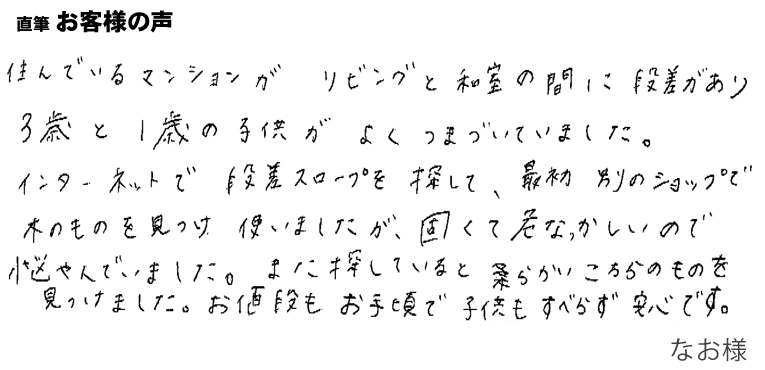 直筆 お客様の声
住んでいるマンションが リビングと和室の間に段差があり
3歳と1歳の子供が よくつまづいていました。
インターネットで 段差スロープを 探して、最初 別のショップで
木のものを見つけ 使いましたが、固くて危なっかしいので
悩やんでいました。また探していると 柔らかい こちらのものを
見つけました。お値段も お手頃で 子供も すべらず 安心です。
なお様